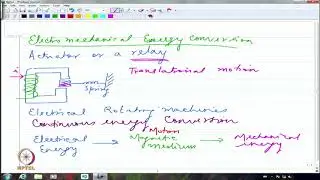 Electro mechanical Energy Conversion
Actuator or a relay
Translational motion
Spring
Electrical Rotating machines
Continuous energy Conversion
Electrical Energy → Motion Magnetic medium → Mechanical energy
NPTEL